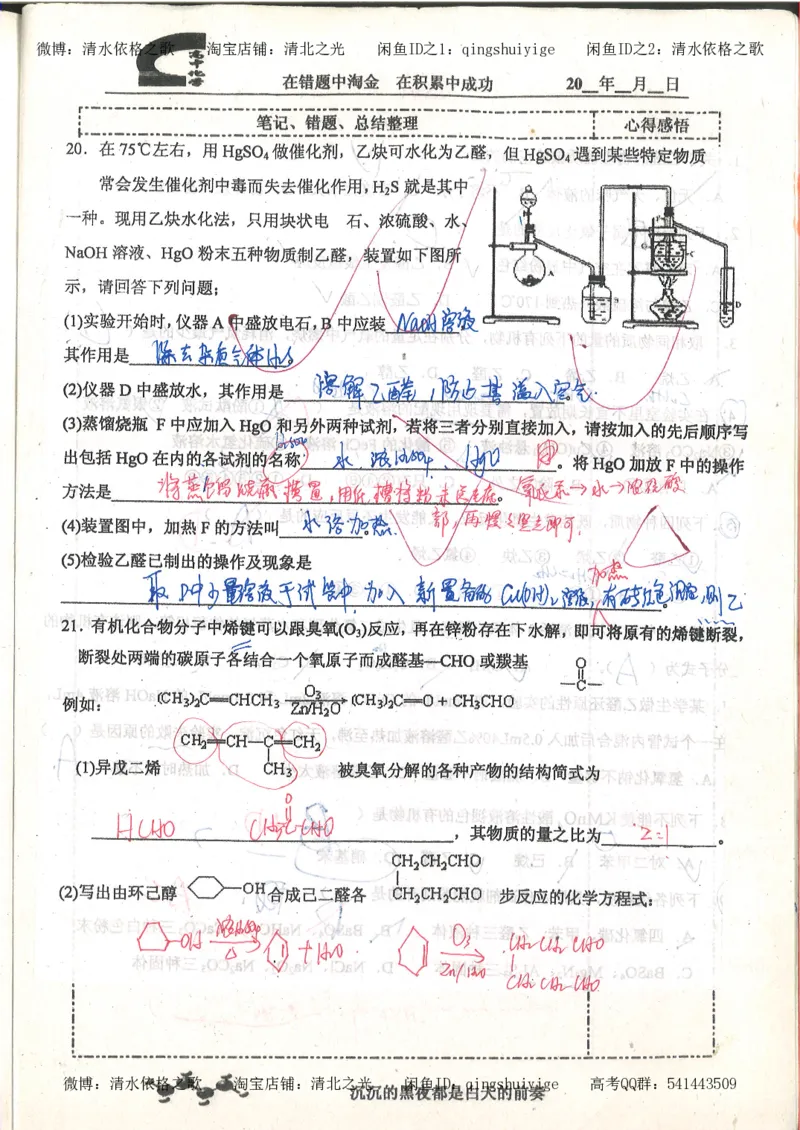 微博：清水依格之歌 淘宝店铺：清北之光 闲鱼ID之1：qingshuiyige 闲鱼ID之2：清水依格之歌
高中化学
在错题中淘金 在积累中成功 20__年__月__日
笔记、错题、总结整理 心得感悟
20．在75℃左右，用HgSO₄做催化剂，乙炔可水化为乙醛，但HgSO₄遇到某些特定物质
常会发生催化剂中毒而失去催化作用，H₂S就是其中
一种。现用乙炔水化法，只用块状电 石、浓硫酸、水、
NaOH溶液、HgO粉末五种物质制乙醛，装置如下图所
示，请回答下列问题；
(1)实验开始时，仪器A中盛放电石，B中应装 NaOH溶液
其作用是 除去杂质气体H₂S
(2)仪器D中盛放水，其作用是 溶解乙醛，防止其溢入空气.
(3)蒸馏烧瓶 F中应加入HgO和另外两种试剂，若将三者分别直接加入，请按加入的先后顺序写
出包括HgO在内的各试剂的名称 水、浓H₂SO₄、HgO 。将HgO加放F中的操作
方法是 氧化汞→水→浓硫酸
(4)装置图中，加热F的方法叫 水浴加热.
部，再慢慢竖立即可.
(5)检验乙醛已制出的操作及现象是 加热
取D中少量溶液于试管中，加入新置备的Cu(OH)₂溶液，有砖红色沉淀，则乙
21．有机化合物分子中烯键可以跟臭氧(O₃)反应，再在锌粉存在下水解，即可将原有的烯键断裂，
断裂处两端的碳原子各结合一个氧原子而成醛基—CHO或羰基
O
—C—
例如： (CH₃)₂C═CHCH₃ O₃ Zn/H₂O (CH₃)₂C═O + CH₃CHO
CH₂═CH—C═CH₂
(1)异戊二烯 CH₃ 被臭氧分解的各种产物的结构简式为
HCHO CH₃C-CHO ，其物质的量之比为 2=1 。
CH₂CH₂CHO
(2)写出由环己醇 OH合成己二醛各 CH₂CH₂CHO 步反应的化学方程式：
OH 浓H₂SO₄ △ + H₂O O₃ Zn/H₂O CH₂CH₂CHO
CH₂CH₂CHO
微博：清水依格之歌 淘宝店铺：清北之光 闲鱼ID：qingshuiyige 高考QQ群：541443509
沉沉的黑夜都是白天的前奏